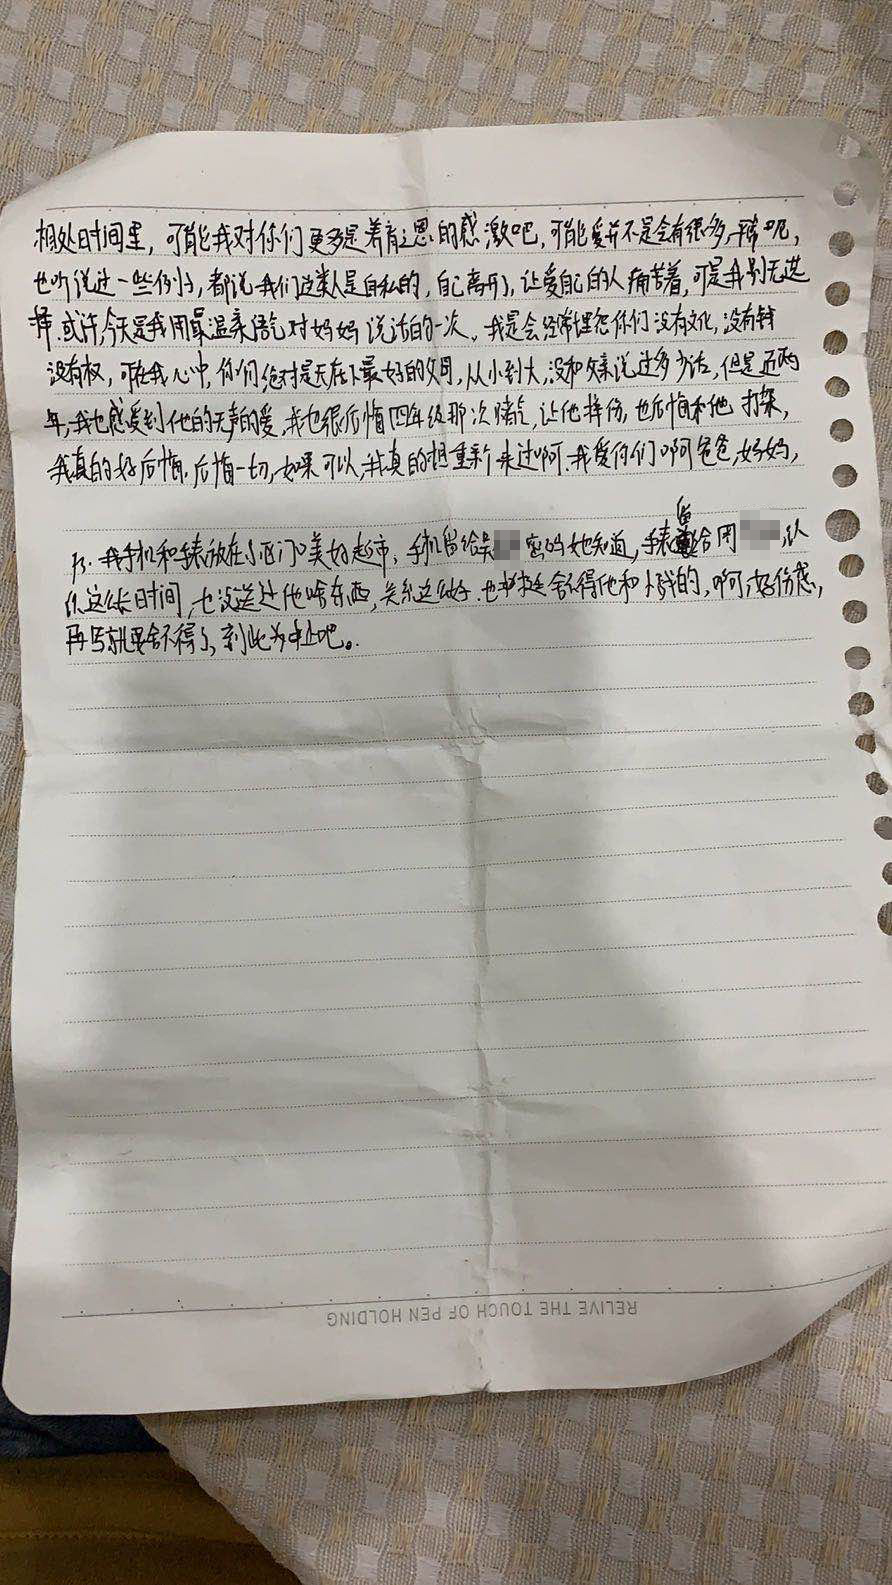 相处时间里，可能我对你们更多是养育之恩的感激吧，可能爱并不是会有很多，唏呢，
也听说过一些例子，都说我们这类人是自私的，自己离开了，让爱自己的人痛苦着，可是我别无选
择.或许，今天是我用最温柔语气对妈妈说话的一次。我是会经常埋怨你们没有文化，没有钱
没有权，可在我心中，你们绝对是天底下最好的父母，从小到大，没和父亲说过多少话，但是近两
年，我也感受到他的无声的爱，我也很后悔四年级那次赌气，让他摔伤，也后悔和他打架，
我真的好后悔.后悔一切，如果可以，我真的想重新来过啊.我爱你们啊爸爸，妈妈，
Ps. 我手机和手表放在小西门口美好超市，手机留给吴 密码她知道，手表留给周 ，认
识这么长时间，也没送过他啥东西，关系这么好.也挺舍不得他和 的，啊，好伤感，
再写就要舍不得了，到此为中止吧。
RELIVE THE TOUCH OF PEN HOLDING